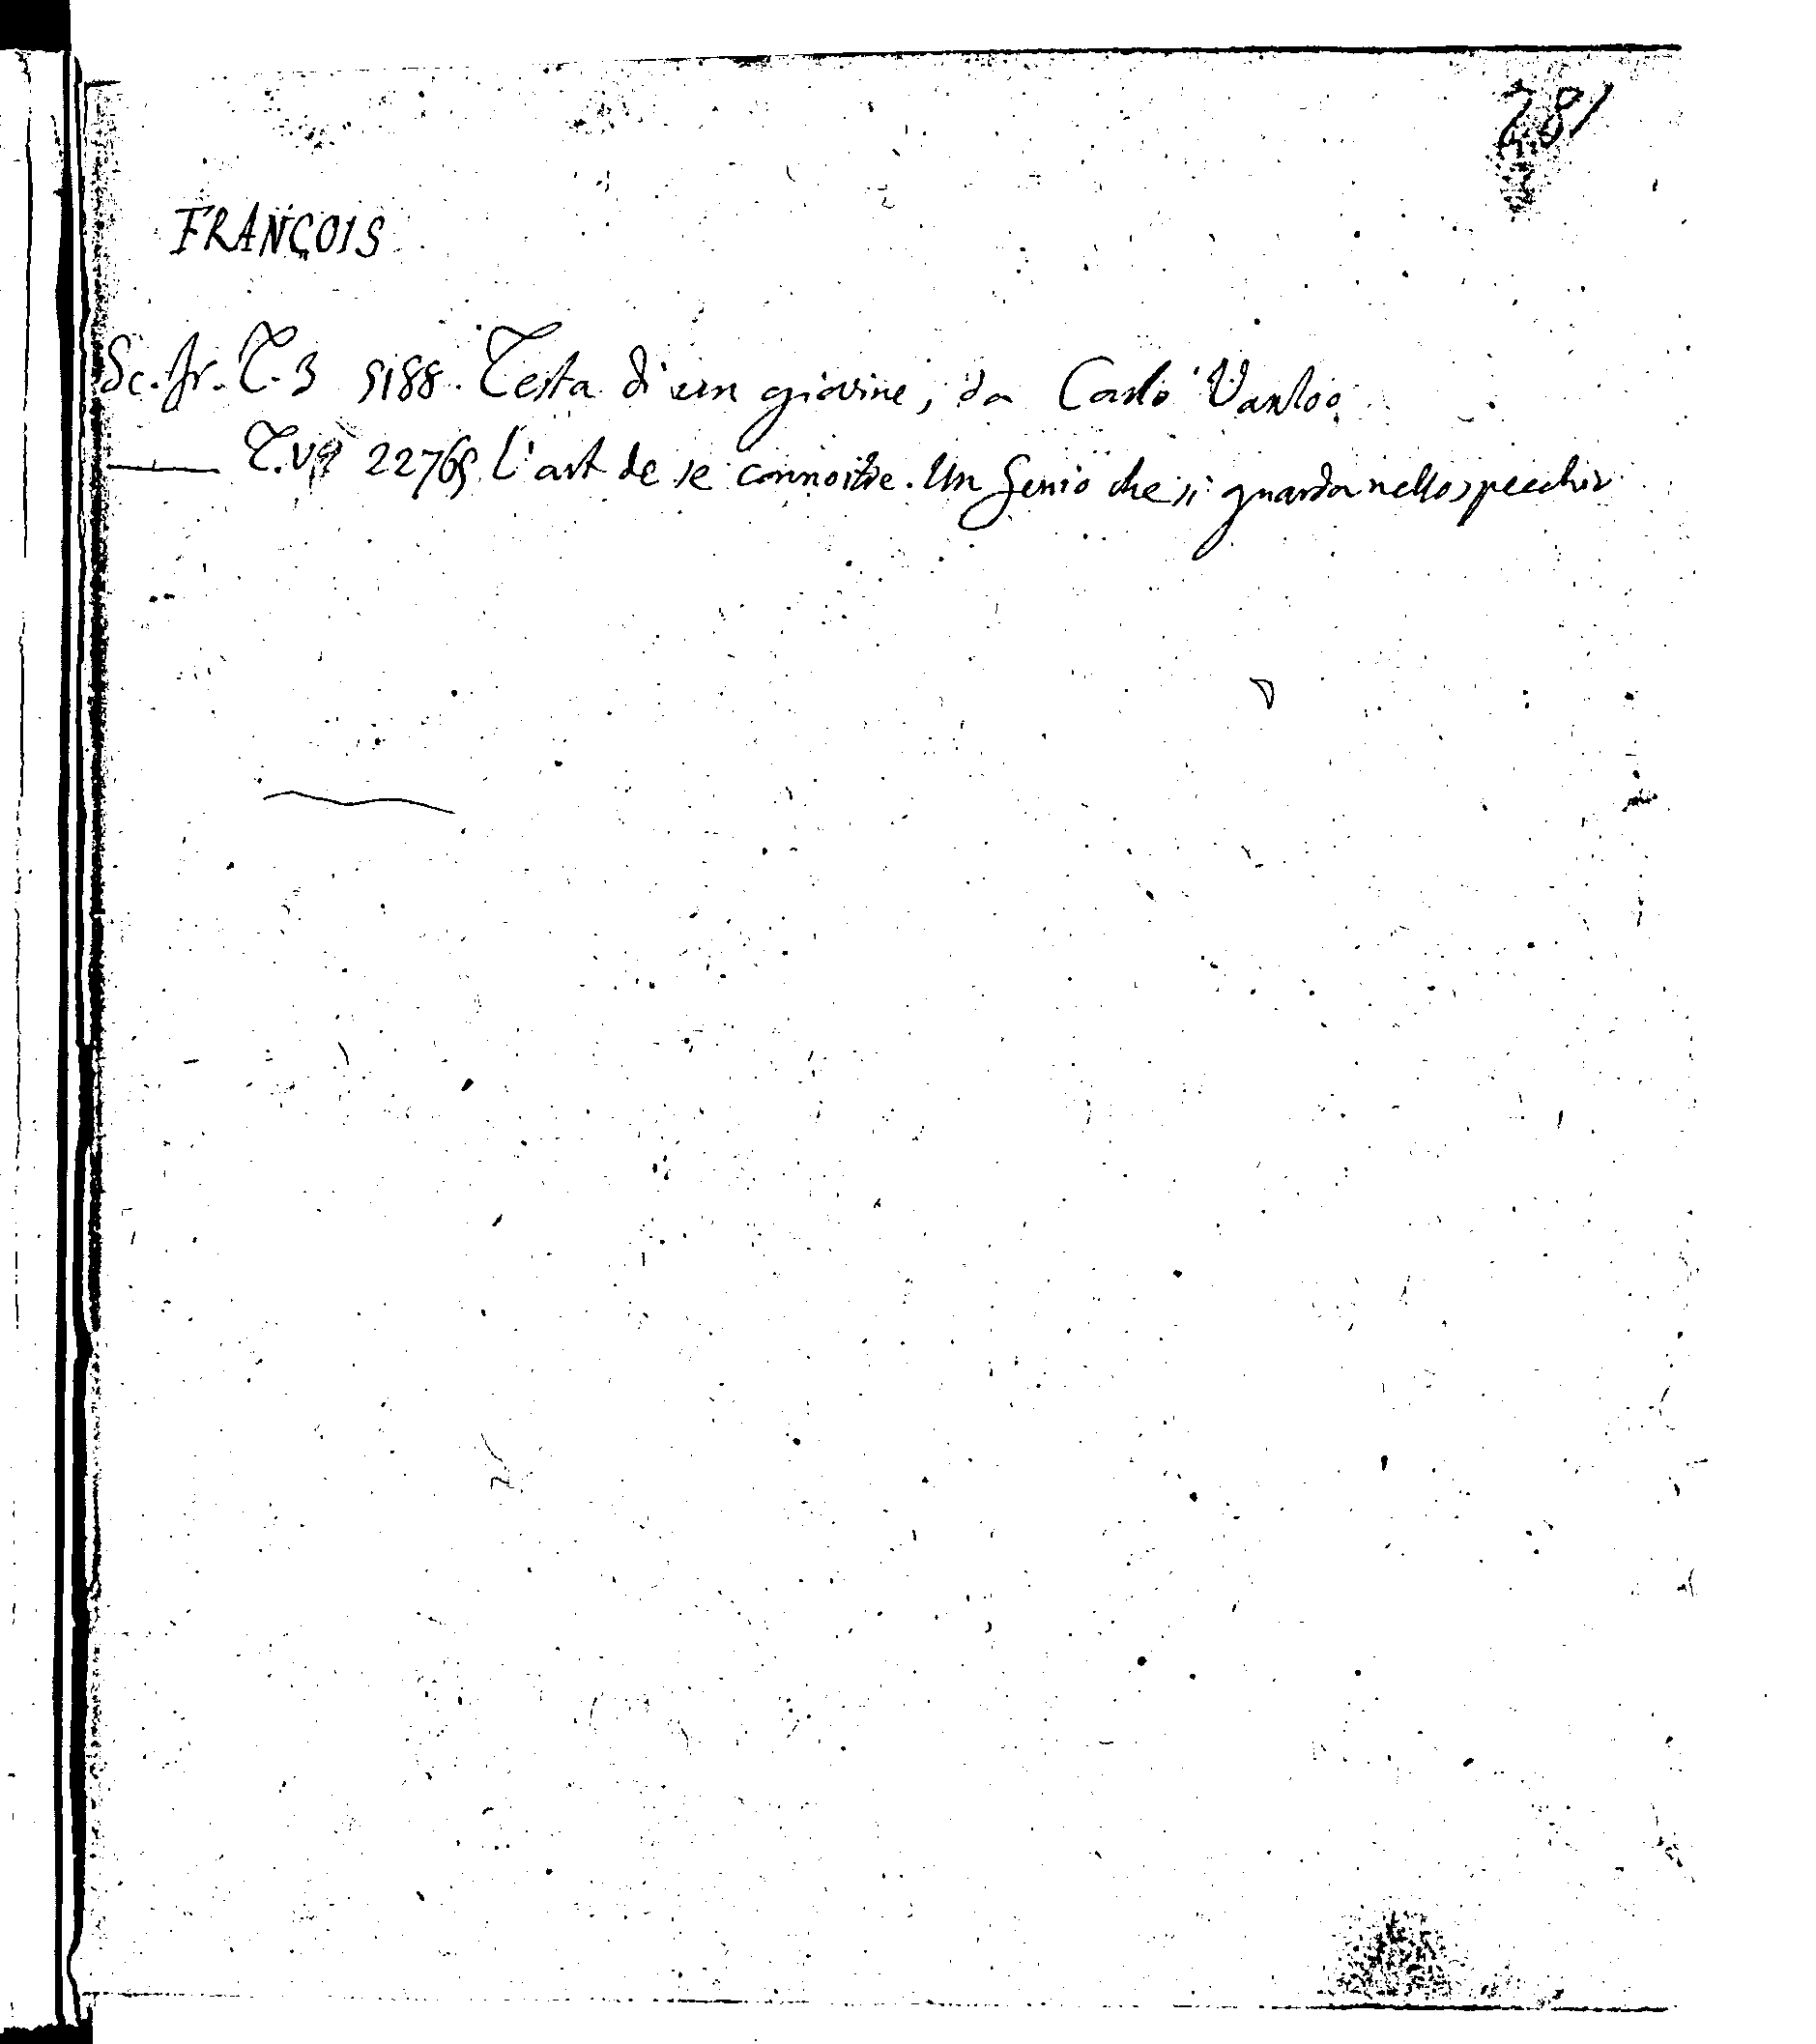 281
FRANÇOIS
Sc. fr. T. 3 5188. Testa di un giovine, da Carlo Vanloo.
T. 22765. L'art de se connoitre. Un Genio che si guarda nello specchio